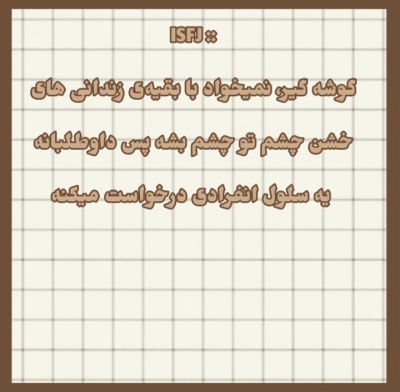 ISFJ ::
گوشه گیر، نمیخواد با بقیه‌ی زندانی های
خشن چشم تو چشم بشه پس داوطلبانه
یه سلول انفرادی درخواست میکنه